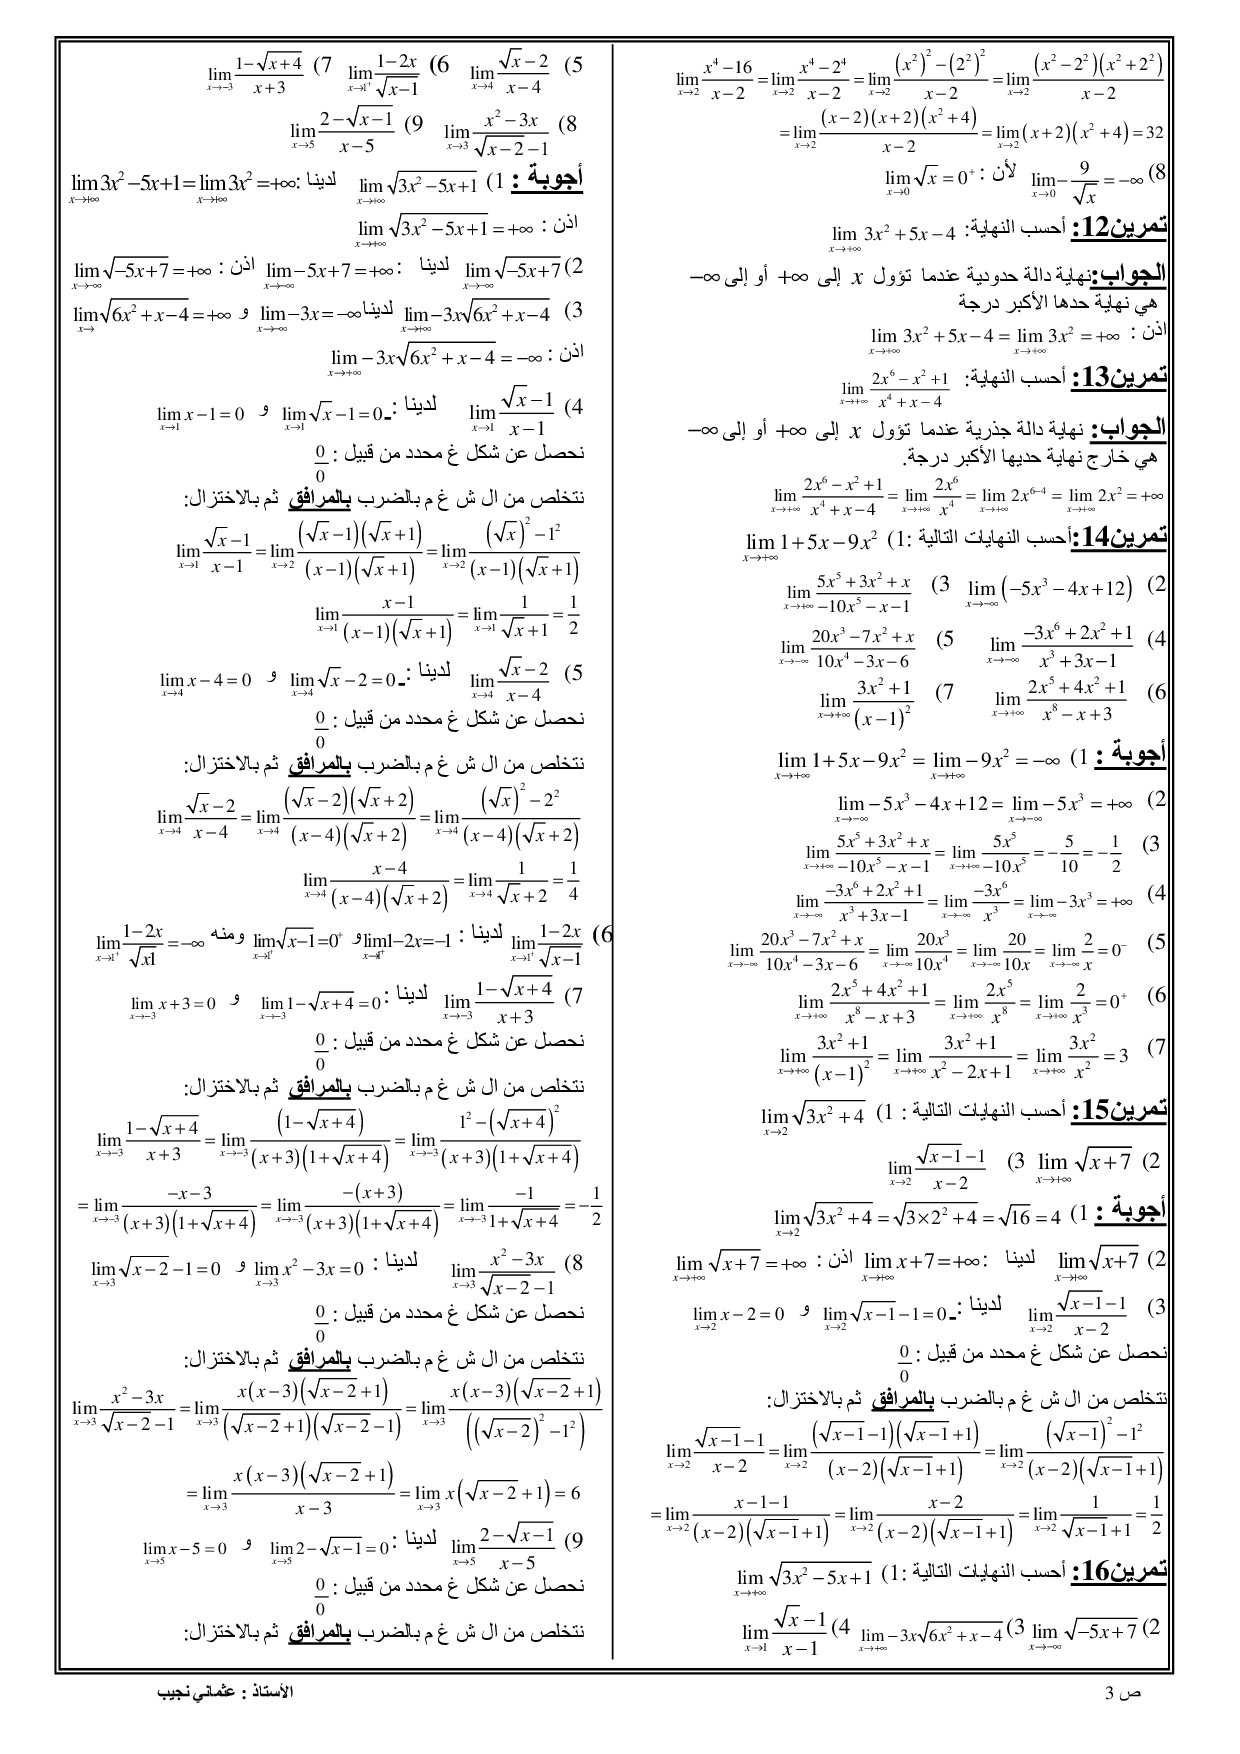 lim_{x→2} (x⁴−16)/(x−2) = lim_{x→2} (x⁴−2⁴)/(x−2) = lim_{x→2} ((x²)²−(2²)²)/(x−2) = lim_{x→2} ((x²−2²)(x²+2²))/(x−2)
= lim_{x→2} ((x−2)(x+2)(x²+4))/(x−2) = lim_{x→2} (x+2)(x²+4) = 32
8) lim_{x→0} −9/√x = −∞ لأن : lim_{x→0} √x = 0⁺
تمرين12: أحسب النهاية: lim_{x→+∞} 3x²+5x−4
الجواب:نهاية دالة حدودية عندما تؤول x إلى +∞ أو إلى −∞
هي نهاية حدها الأكبر درجة
اذن : lim_{x→+∞} 3x²+5x−4 = lim_{x→+∞} 3x² = +∞
تمرين13: أحسب النهاية: lim_{x→+∞} (2x⁶−x²+1)/(x⁴+x−4)
الجواب: نهاية دالة جذرية عندما تؤول x إلى +∞ أو إلى −∞
هي خارج نهاية حديها الأكبر درجة.
lim_{x→+∞} (2x⁶−x²+1)/(x⁴+x−4) = lim_{x→+∞} 2x⁶/x⁴ = lim_{x→+∞} 2x⁶⁻⁴ = lim_{x→+∞} 2x² = +∞
تمرين14:أحسب النهايات التالية :1) lim_{x→+∞} 1+5x−9x²
2) lim_{x→−∞} (−5x³−4x+12) 3) lim_{x→+∞} (5x⁵+3x²+x)/(−10x⁵−x−1)
4) lim_{x→−∞} (−3x⁶+2x²+1)/(x³+3x−1) 5) lim_{x→−∞} (20x³−7x²+x)/(10x⁴−3x−6)
6) lim_{x→+∞} (2x⁵+4x²+1)/(x⁸−x+3) 7) lim_{x→+∞} (3x²+1)/(x−1)²
أجوبة : 1) lim_{x→+∞} 1+5x−9x² = lim_{x→+∞} −9x² = −∞
2) lim_{x→−∞} −5x³−4x+12 = lim_{x→−∞} −5x³ = +∞
3) lim_{x→+∞} (5x⁵+3x²+x)/(−10x⁵−x−1) = lim_{x→+∞} 5x⁵/−10x⁵ = −5/10 = −1/2
4) lim_{x→−∞} (−3x⁶+2x²+1)/(x³+3x−1) = lim_{x→−∞} −3x⁶/x³ = lim_{x→−∞} −3x³ = +∞
5) lim_{x→−∞} (20x³−7x²+x)/(10x⁴−3x−6) = lim_{x→−∞} 20x³/10x⁴ = lim_{x→−∞} 20/10x = lim_{x→−∞} 2/x = 0⁻
6) lim_{x→+∞} (2x⁵+4x²+1)/(x⁸−x+3) = lim_{x→+∞} 2x⁵/x⁸ = lim_{x→+∞} 2/x³ = 0⁺
7) lim_{x→+∞} (3x²+1)/(x−1)² = lim_{x→+∞} (3x²+1)/(x²−2x+1) = lim_{x→+∞} 3x²/x² = 3
تمرين15: أحسب النهايات التالية : 1) lim_{x→2} √(3x²+4)
2) lim_{x→+∞} √(x+7) 3) lim_{x→2} (√(x−1)−1)/(x−2)
أجوبة : 1) lim_{x→2} √(3x²+4) = √(3×2²+4) = √16 = 4
2) lim_{x→+∞} √(x+7) لدينا : lim_{x→+∞} x+7=+∞ اذن : lim_{x→+∞} √(x+7) = +∞
3) lim_{x→2} (√(x−1)−1)/(x−2) لدينا : lim_{x→2} √(x−1)−1=0 و lim_{x→2} x−2=0
نحصل عن شكل غ محدد من قبيل : 0/0
نتخلص من ال ش غ م بالضرب بالمرافق ثم بالاختزال:
lim_{x→2} (√(x−1)−1)/(x−2) = lim_{x→2} ((√(x−1)−1)(√(x−1)+1))/((x−2)(√(x−1)+1)) = lim_{x→2} ((√(x−1))²−1²)/((x−2)(√(x−1)+1))
= lim_{x→2} (x−1−1)/((x−2)(√(x−1)+1)) = lim_{x→2} (x−2)/((x−2)(√(x−1)+1)) = lim_{x→2} 1/(√(x−1)+1) = 1/2
تمرين16: أحسب النهايات التالية :1) lim_{x→+∞} √(3x²−5x+1)
2) lim_{x→−∞} √(−5x+7) 3) lim_{x→+∞} −3x√(6x²+x−4) 4) lim_{x→1} (√x−1)/(x−1)
5) lim_{x→4} (√x−2)/(x−4) 6) lim_{x→1⁺} (1−2x)/√(x−1) 7) lim_{x→−3} (1−√(x+4))/(x+3)
8) lim_{x→3} (x²−3x)/(√(x−2)−1) 9) lim_{x→5} (2−√(x−1))/(x−5)
أجوبة : 1) lim_{x→+∞} √(3x²−5x+1) لدينا : lim_{x→+∞} 3x²−5x+1=lim_{x→+∞} 3x²=+∞
اذن : lim_{x→+∞} √(3x²−5x+1) = +∞
2) lim_{x→−∞} √(−5x+7) لدينا : lim_{x→−∞} −5x+7=+∞ اذن : lim_{x→−∞} √(−5x+7)=+∞
3) lim_{x→+∞} −3x√(6x²+x−4) لدينا lim_{x→−∞} −3x=−∞ و lim_{x→} √(6x²+x−4)=+∞
اذن : lim_{x→+∞} −3x√(6x²+x−4) = −∞
4) lim_{x→1} (√x−1)/(x−1) لدينا : lim_{x→1} √x−1=0 و lim_{x→1} x−1=0
نحصل عن شكل غ محدد من قبيل : 0/0
نتخلص من ال ش غ م بالضرب بالمرافق ثم بالاختزال:
lim_{x→1} (√x−1)/(x−1) = lim_{x→2} ((√x−1)(√x+1))/((x−1)(√x+1)) = lim_{x→2} ((√x)²−1²)/((x−1)(√x+1))
lim_{x→1} (x−1)/((x−1)(√x+1)) = lim_{x→1} 1/(√x+1) = 1/2
5) lim_{x→4} (√x−2)/(x−4) لدينا : lim_{x→4} √x−2=0 و lim_{x→4} x−4=0
نحصل عن شكل غ محدد من قبيل : 0/0
نتخلص من ال ش غ م بالضرب بالمرافق ثم بالاختزال:
lim_{x→4} (√x−2)/(x−4) = lim_{x→4} ((√x−2)(√x+2))/((x−4)(√x+2)) = lim_{x→4} ((√x)²−2²)/((x−4)(√x+2))
lim_{x→4} (x−4)/((x−4)(√x+2)) = lim_{x→4} 1/(√x+2) = 1/4
6) lim_{x→1⁺} (1−2x)/√(x−1) لدينا : lim_{x→1⁺} 1−2x=−1 و lim_{x→1⁺} √(x−1)=0⁺ ومنه lim_{x→1⁺} (1−2x)/√x1 = −∞
7) lim_{x→−3} (1−√(x+4))/(x+3) لدينا : lim_{x→−3} 1−√(x+4)=0 و lim_{x→−3} x+3=0
نحصل عن شكل غ محدد من قبيل : 0/0
نتخلص من ال ش غ م بالضرب بالمرافق ثم بالاختزال:
lim_{x→−3} (1−√(x+4))/(x+3) = lim_{x→−3} (1−√(x+4))/((x+3)(1+√(x+4))) = lim_{x→−3} (1²−(√(x+4))²)/((x+3)(1+√(x+4)))
= lim_{x→−3} (−x−3)/((x+3)(1+√(x+4))) = lim_{x→−3} −(x+3)/((x+3)(1+√(x+4))) = lim_{x→−3} −1/(1+√(x+4)) = −1/2
8) lim_{x→3} (x²−3x)/(√(x−2)−1) لدينا : lim_{x→3} x²−3x=0 و lim_{x→3} √(x−2)−1=0
نحصل عن شكل غ محدد من قبيل : 0/0
نتخلص من ال ش غ م بالضرب بالمرافق ثم بالاختزال:
lim_{x→3} (x²−3x)/(√(x−2)−1) = lim_{x→3} (x(x−3)(√(x−2)+1))/((√(x−2)+1)(√(x−2)−1)) = lim_{x→3} (x(x−3)(√(x−2)+1))/((√(x−2))²−1²)
= lim_{x→3} (x(x−3)(√(x−2)+1))/(x−3) = lim_{x→3} x(√(x−2)+1) = 6
9) lim_{x→5} (2−√(x−1))/(x−5) لدينا : lim_{x→5} 2−√(x−1)=0 و lim_{x→5} x−5=0
نحصل عن شكل غ محدد من قبيل : 0/0
نتخلص من ال ش غ م بالضرب بالمرافق ثم بالاختزال:
ص 3
الأستاذ : عثماني نجيب